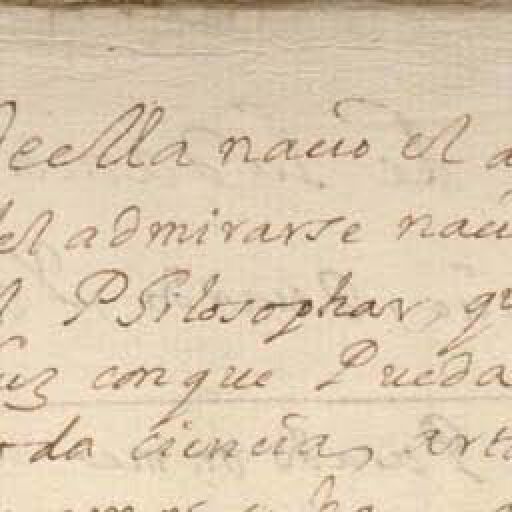 de ella nacio el a
del admirarse naci
el Philosophar, qu
luz con que Pueda
toda ciencia, arte